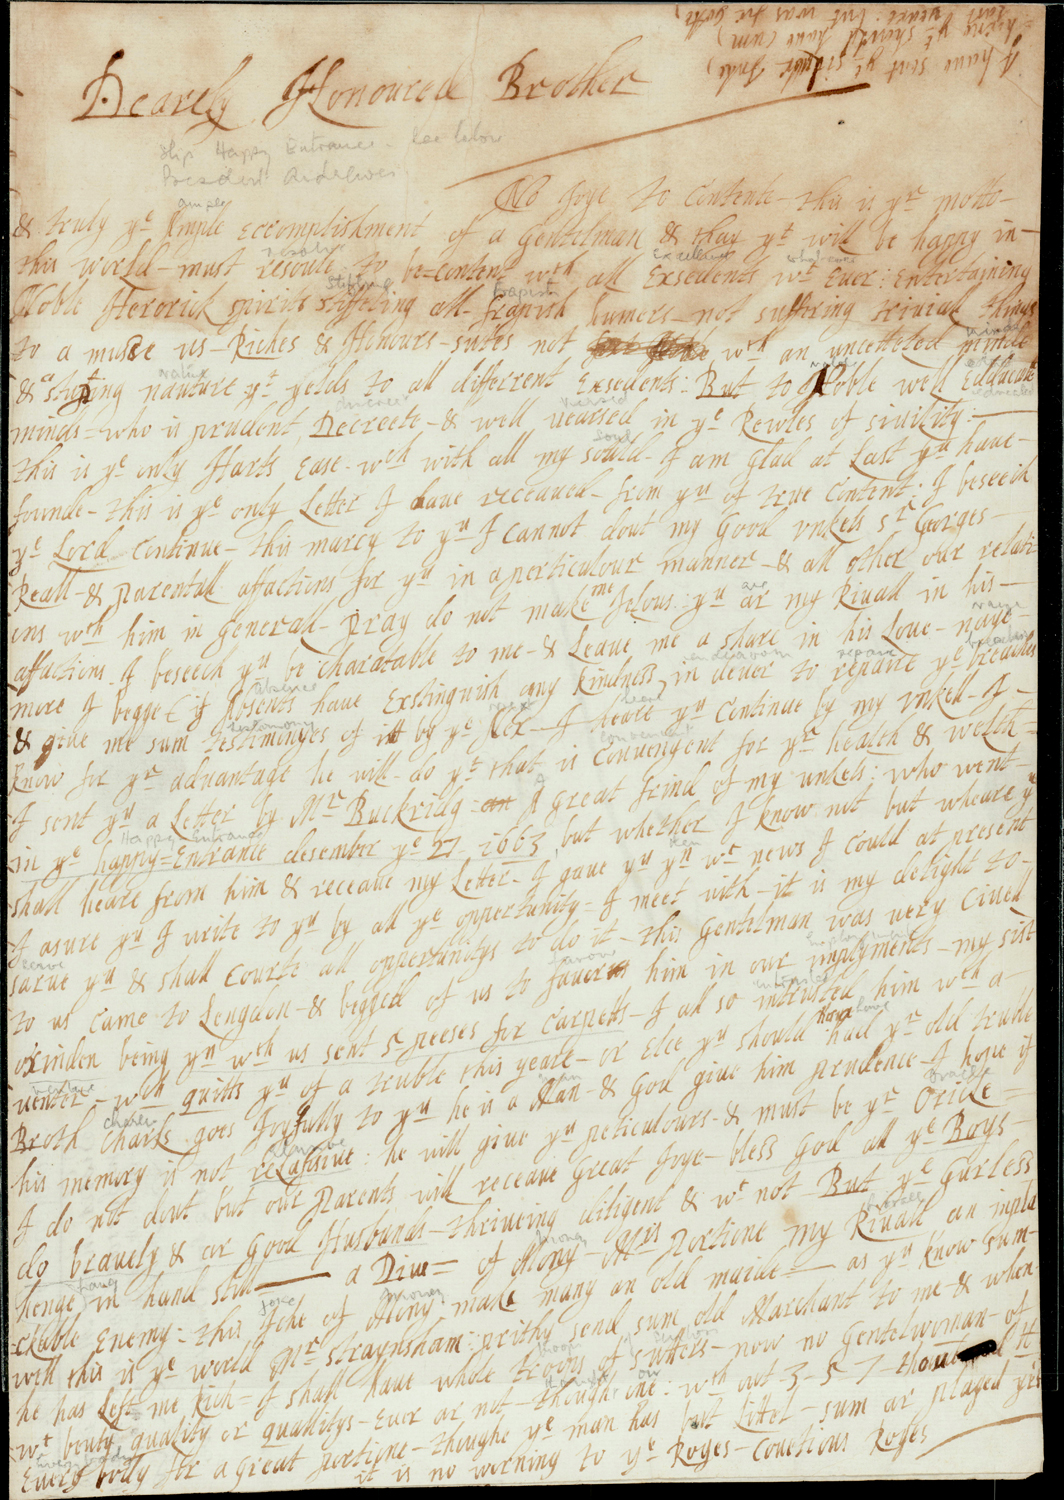 I have sent yt
hope yt should have
last yeare but was
Dearely Honoured Brother
Ship Happy Entrance - see below
President
No Joye to Contente - this is yr motto -
& truly ye Ample Eccomplishment of a Gentelman & thay yt will be happy in -
this world - must resoule to be=content wth all Exsedents wt Euer: Entertaining
Noble Herorick spirits stiffeling all frapish humers - not suffering triviak things
to a muse us - Riches & Honours - sutes not wth an uncetteled minde
& nauture yt yelds to all different Exsedents: But to A Noble well Edducate
minds = who is prudent, Decreete - & well uearsed in ye Rewles of siuility: -
this is ye only Harts Ease - wch with all my sould - I am glad at Last yu haue -
founde - this is ye only Letter I haue receaued - from yu of true Content: I beseech
ye Lord continue - this marcy to yu I cannot dout my Good unkels Sr Georges -
Reall - & parentall affactions for yu in a perticulour manner - & all other our relati-
ons wth him in Generall - pray do not make me Jelous: yu ar my Riuall in his -
affactions I beseech yu be charatable to me - & Leaue me a share in his Loue - naye
more I begge if Absents haue Exstinguish any kindness, in deuer to repaire ye breaches
& giue me sum testimonyes of itt by ye Nex - I heare yu Continue by my unkell - I -
know for yr aduantage he will - do yt that is Conuenyent for yr health & welth =
I sent yu a Letter by Mr Buckridg: A great frind of my unkels: who went -
in ye happy=Entrance desember ye 27 1663, but whether I know not but wheare yu
shall heare from him & receaue my Letter - I gaue yu yn wt news I Could at present
I asure yu I write to yu by all ye oppertunity = I meet with - it is my delight to -
sarue yu & shall Courte all oppertunitys to do it - this Gentelman was uery Ciuell
to us came to Lengdon - & begged of us to fauer him in our imployments - my sist
oxinden being yn wth us sent 5 peeses for Carpetts - I all so intrusted him wth a -
uenter - wch quitts yu of a truble this yeare - or Elce yu should haue had yr old truble
Broth Charls goes Joyfully to yu he is a Man - & God giue him prudence - I hope if
his memory is not reLafsiue: he will giue yu peticulours - & must be yr Oricle =
I do not dout but our parents will receaue Great Joye - bless God all ye Boys -
do brauely & ar Good Husbands - thriueing diligent & wt not - But ye Gurless
henge in hand still - a Diue = of Mony - Mris portione my Riuall an impla
=ckable Enemy: this Joke of Mony make many an old maide - as yu know sum -
well this is ye world Mr Straynsham: prithy send sum old Marchant to me & when
he has Left me Rich = I shall haue whole troops of sutters - now no Gentelwoman - of
wt bouty quality or quallitys - Euer ar not - thought one: wth out 3 - 5 - 7 - thousand
Euery body for a great portione - thoughe ye man has but Littel - sum ar played
it is no worning to ye Roges - Couetious Roges